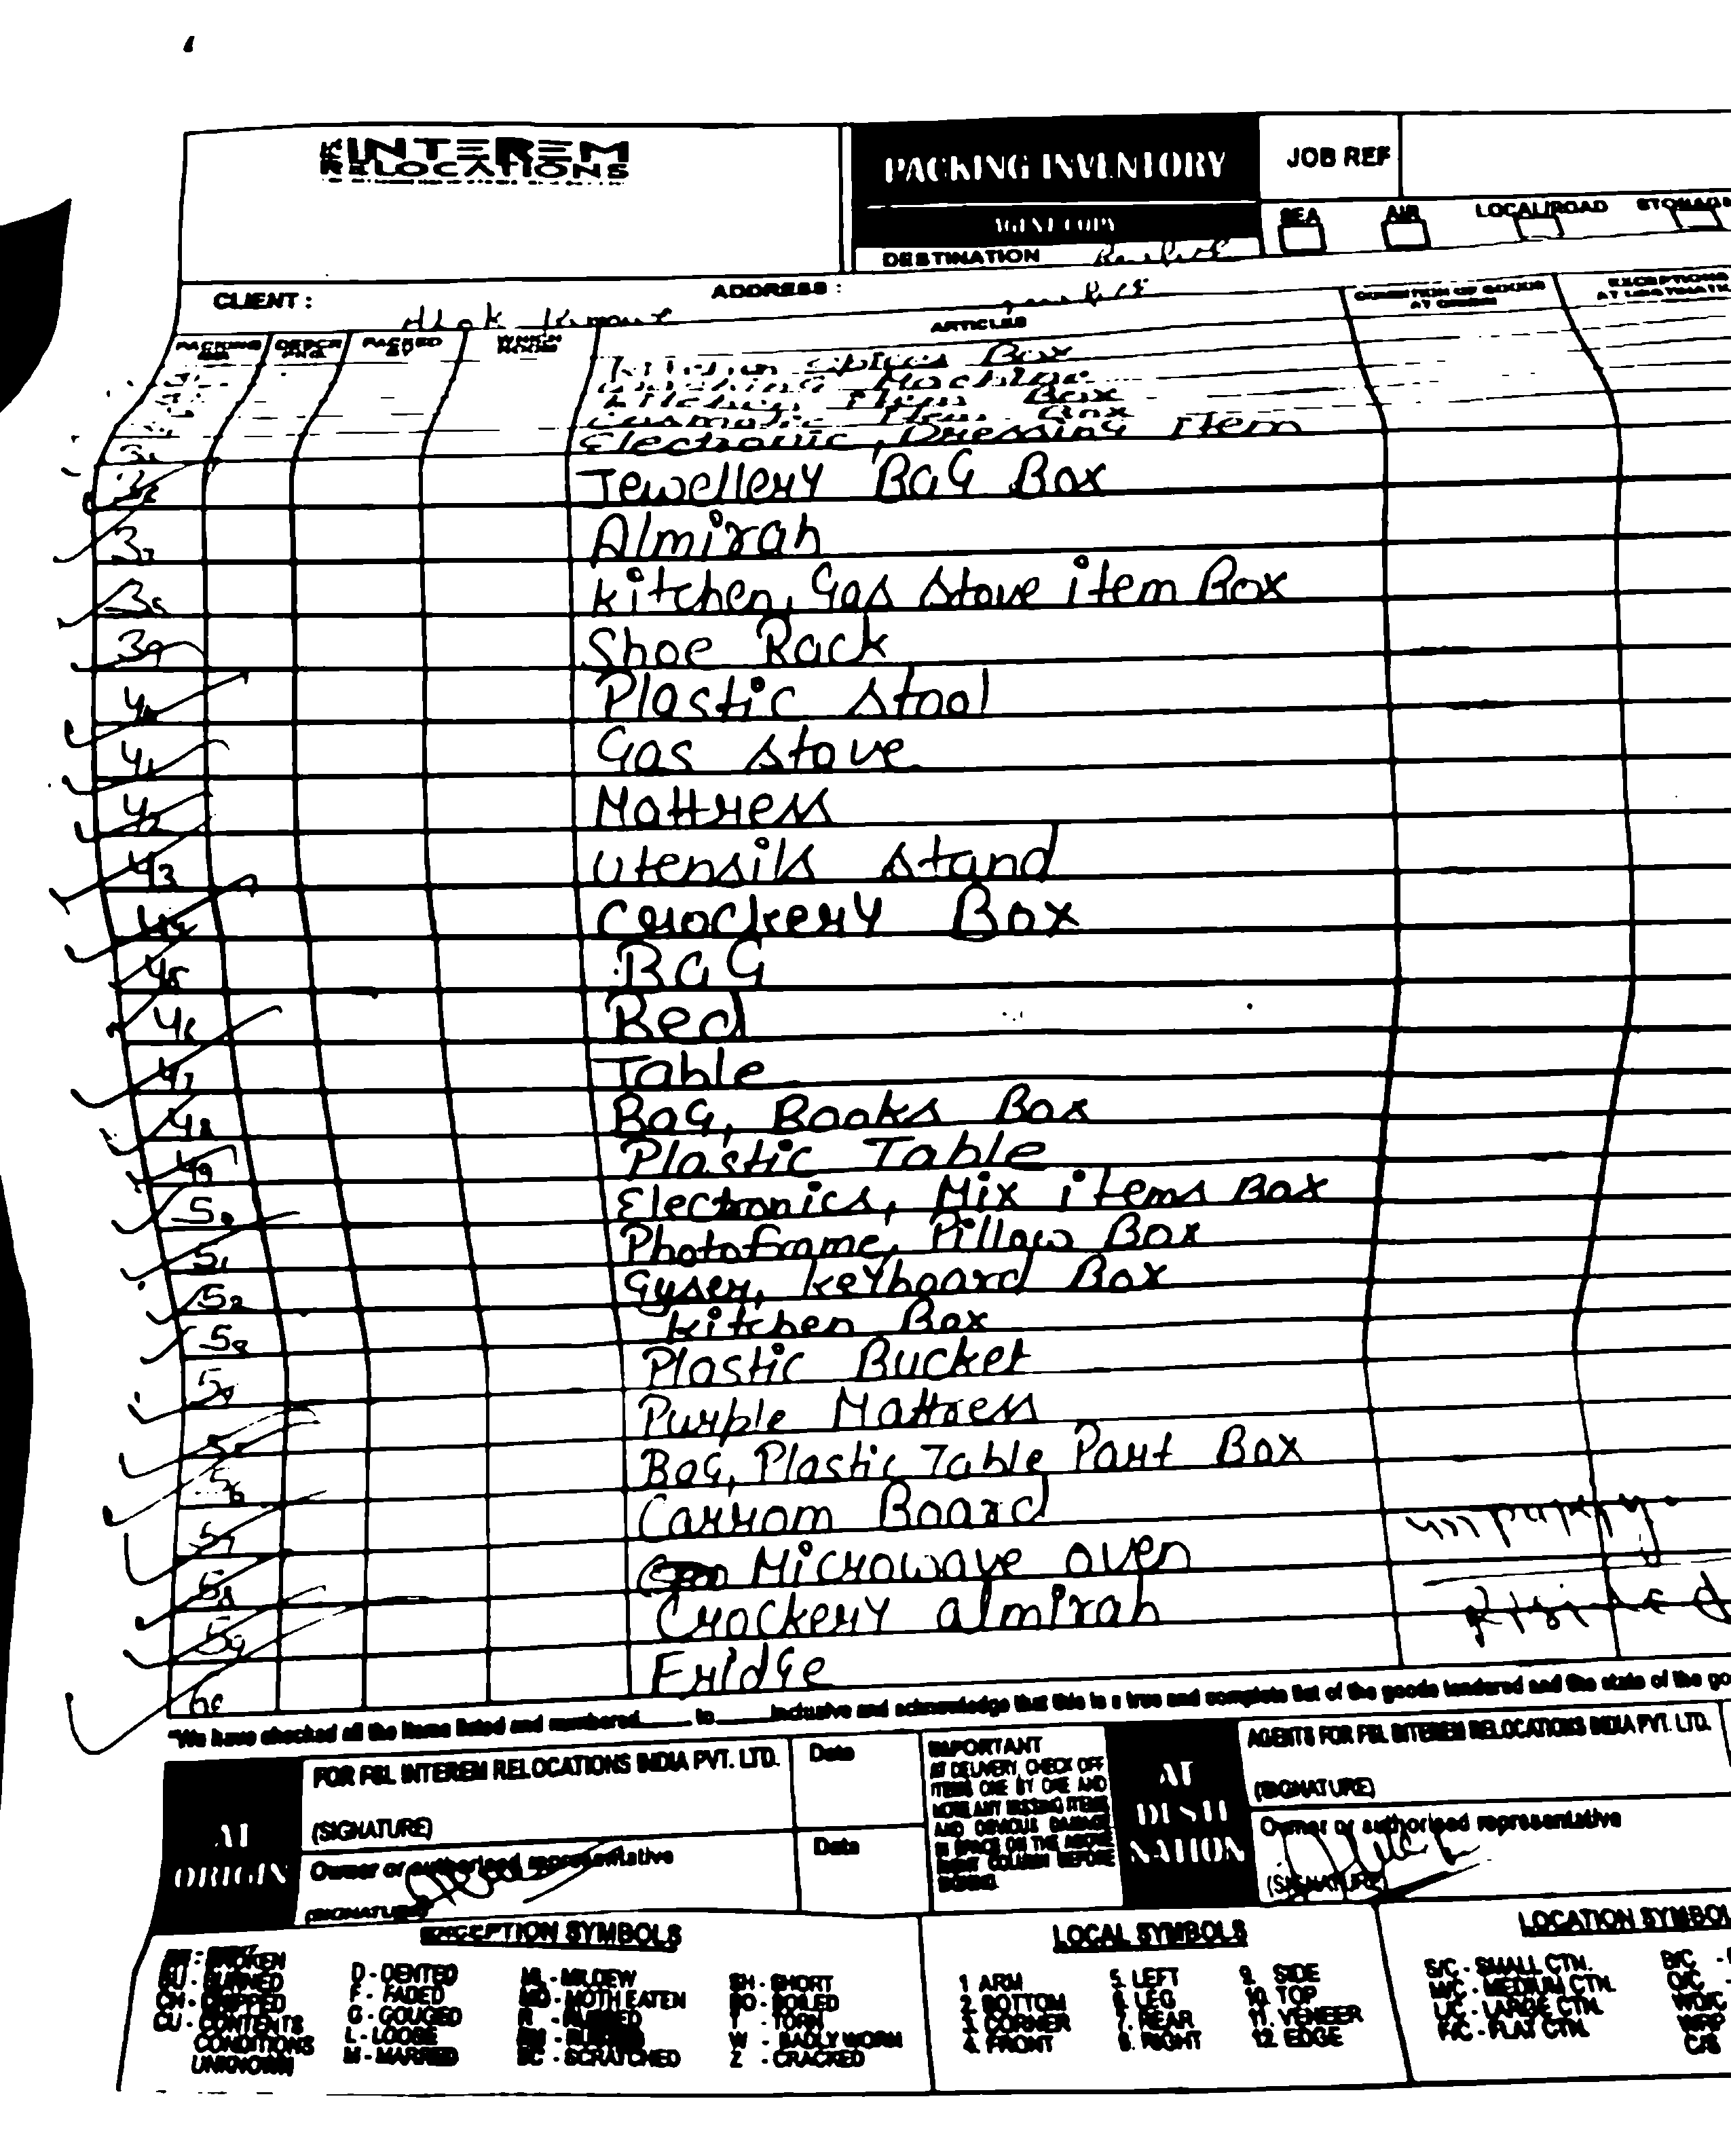 INTEREM
RELOCATIONS
PACKING INVENTORY
AGENT COPY
JOB REF
SEA AIR LOCAL/ROAD STORAGE
DESTINATION
CLIENT : Alok Kumar ADDRESS :
PACKING NO. DESCR PKG. PACKED BY WHICH ROOM ARTICLES CONDITION OF GOODS AT ORIGIN EXCEPTIONS AT DESTINATION
Kitchen Spices Box
Washing Machine
Kitchen Item Box
Cosmatic Item Box
Electronic, Dressing Item
36 Jewellery BaG Box
37 Almirah
38 kitchen, Gas Stove item Box
39 Shoe Rack
40 Plastic Stool
41 Gas stove
42 Mattress
43 Utensils stand
44 Crockery Box
45 BaG
46 Bed
47 Table
48 BaG, Books Box
49 Plastic Table
50 Electronics, Mix items Box
51 Photoframe, Pillow Box
52 Gyser, keyboard Box
53 kitchen Box
54 Plastic Bucket
55 Purple Mattress
56 BaG, Plastic Table Part Box
57 Carrom Board
58 Microwave oven
59 Crockery almirah
60 Fridge
"We have checked all the items listed and numbered to inclusive and acknowledge that this is a true and complete list of the goods tendered and the state of the
AT ORIGIN
FOR F&L INTEREM RELOCATIONS INDIA PVT. LTD.
(SIGNATURE)
Date
Owner or authorised representative
(SIGNATURE)
Date
IMPORTANT
AT DELIVERY, CHECK OFF
ITEMS ONE BY ONE AND
NOTE ANY MISSING ITEMS
AND OBVIOUS DAMAGE
IN SPACE ON THE ABOVE
RIGHT COLUMN BEFORE
SIGNING.
AT DESTINATION
AGENTS FOR F&L INTEREM RELOCATIONS INDIA PVT. LTD.
(SIGNATURE)
Owner or authorised representative
(SIGNATURE)
EXCEPTION SYMBOLS
BROKEN
BU - BURNED
CH - CHIPPED
CU - CONTENTS
CONDITIONS
UNKNOWN
D - DENTED
F - FADED
G - GOUGED
L - LOOSE
M - MARRED
ML - MILDEW
MO - MOTH EATEN
R - RUBBED
SC - SCRATCHED
SH - SHORT
SO - SOILED
T - TORN
W - BADLY WORN
Z - CRACKED
LOCAL SYMBOLS
1 ARM
2. BOTTOM
3. CORNER
4. FRONT
5. LEFT
6. LEG
7. REAR
8. RIGHT
9. SIDE
10. TOP
11. VENEER
12. EDGE
LOCATION SYMBOL
S/C - SMALL CTN.
M/C - MEDIUM CTN.
L/C - LARGE CTN.
F/C - FLAT CTN.
B/C -
O/C -
WRP
C/S